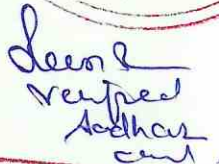 verified
Aadhar
card